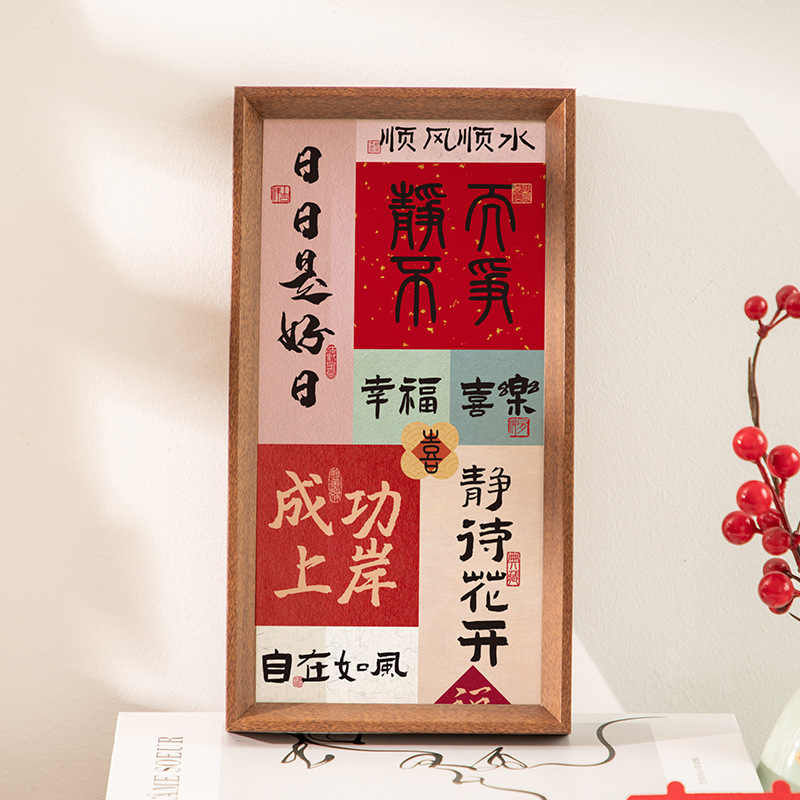 顺风顺水
日日是好日
静而
不争
幸福
喜樂
喜
成功
上岸
静待花开
自在如風
福
L'ÂME SOEUR